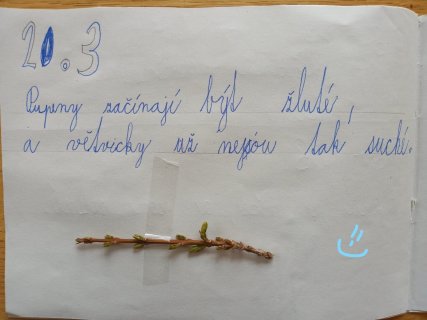 20.3
Pupeny začínají být žluté,
a větvicky už nejsou tak suché.